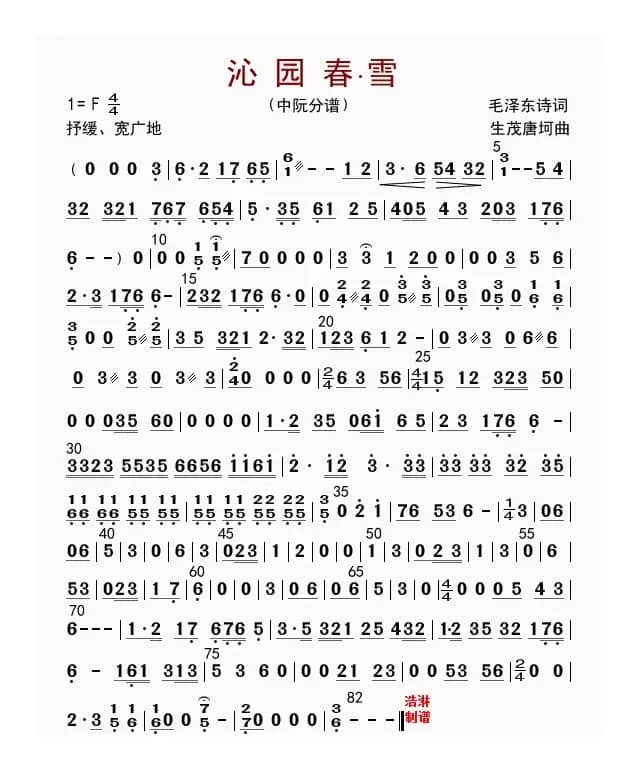 沁园春·雪
1=F 4/4 （中阮分谱） 毛泽东诗词
抒缓、宽广地 生茂唐坷曲
5
( 0 0 0 3 | 6 · 2 1 7 6 5 | 6/1 - - 1 2 | 3 · 6 5 4 3 2 | 3/1 - - 5 4 |
3 2 3 2 1 7 6 7 6 5 4 | 5 · 3 5 6 1 2 5 | 4 0 5 4 3 2 0 3 1 7 6 |
10
6 - - ) 0 | 0 0 1/5 1/5 | 7 0 0 0 0 | 3 3 1 2 0 0 | 0 0 3 5 6 |
15
2 · 3 1 7 6 6 - | 2 3 2 1 7 6 6 · 0 | 0 2/4 2/4 0 3/5 3/5 | 0 3/5 0 5 0 1/6 1/6 |
20
3/5 0 0 2/5 2/5 | 3 5 3 2 1 2 · 3 | 1 2 3 6 1 2 - | 0 3 3 0 6 6 |
25
0 3 3 0 3 3 | 2/4 0 0 0 0 | 2/4 6 3 5 6 | 4/4 1 5 1 2 3 2 3 5 0 |
0 0 0 3 5 6 0 | 0 0 0 0 | 1 · 2 3 5 0 6 1 6 5 | 2 3 1 7 6 6 - |
30
3 3 2 3 5 5 3 5 6 6 5 6 1 1 6 1 | 2 · 1 2 3 · 3 | 3 3 3 3 3 2 3 5 |
35
1 1/6 6 1 1/6 6 1 1/5 5 2 2/5 5 | 1 1/6 6 1 1/5 5 2 2/5 5 | 3/5 0 2 1 | 7 6 5 3 6 - | 1/4 3 | 0 6 |
40 45 50 55
0 6 | 5 | 3 | 0 | 6 | 3 | 0 2 3 | 1 | 2 | 0 | 0 | 1 | 3 | 0 2 3 | 1 | 3 | 0 | 6 |
60 65
5 3 | 0 2 3 | 1 7 | 6 | 0 | 0 | 3 | 0 6 | 0 6 | 5 | 3 | 0 | 4/4 0 0 0 5 4 3 |
70
6 - - - | 1 · 2 1 7 6 7 6 5 | 3 · 5 3 2 1 2 5 4 3 2 | 1 · 2 3 5 3 2 1 7 6 |
75
6 - 1 6 1 3 1 3 | 5 3 6 0 | 0 0 2 1 2 3 | 0 0 5 3 5 6 | 2/4 0 0 |
82 浩淋
2 · 3 1/5 1/6 | 1/6 0 0 7/5 - | 2/7 0 0 0 0 | 3/6 - - - ‖ 制谱